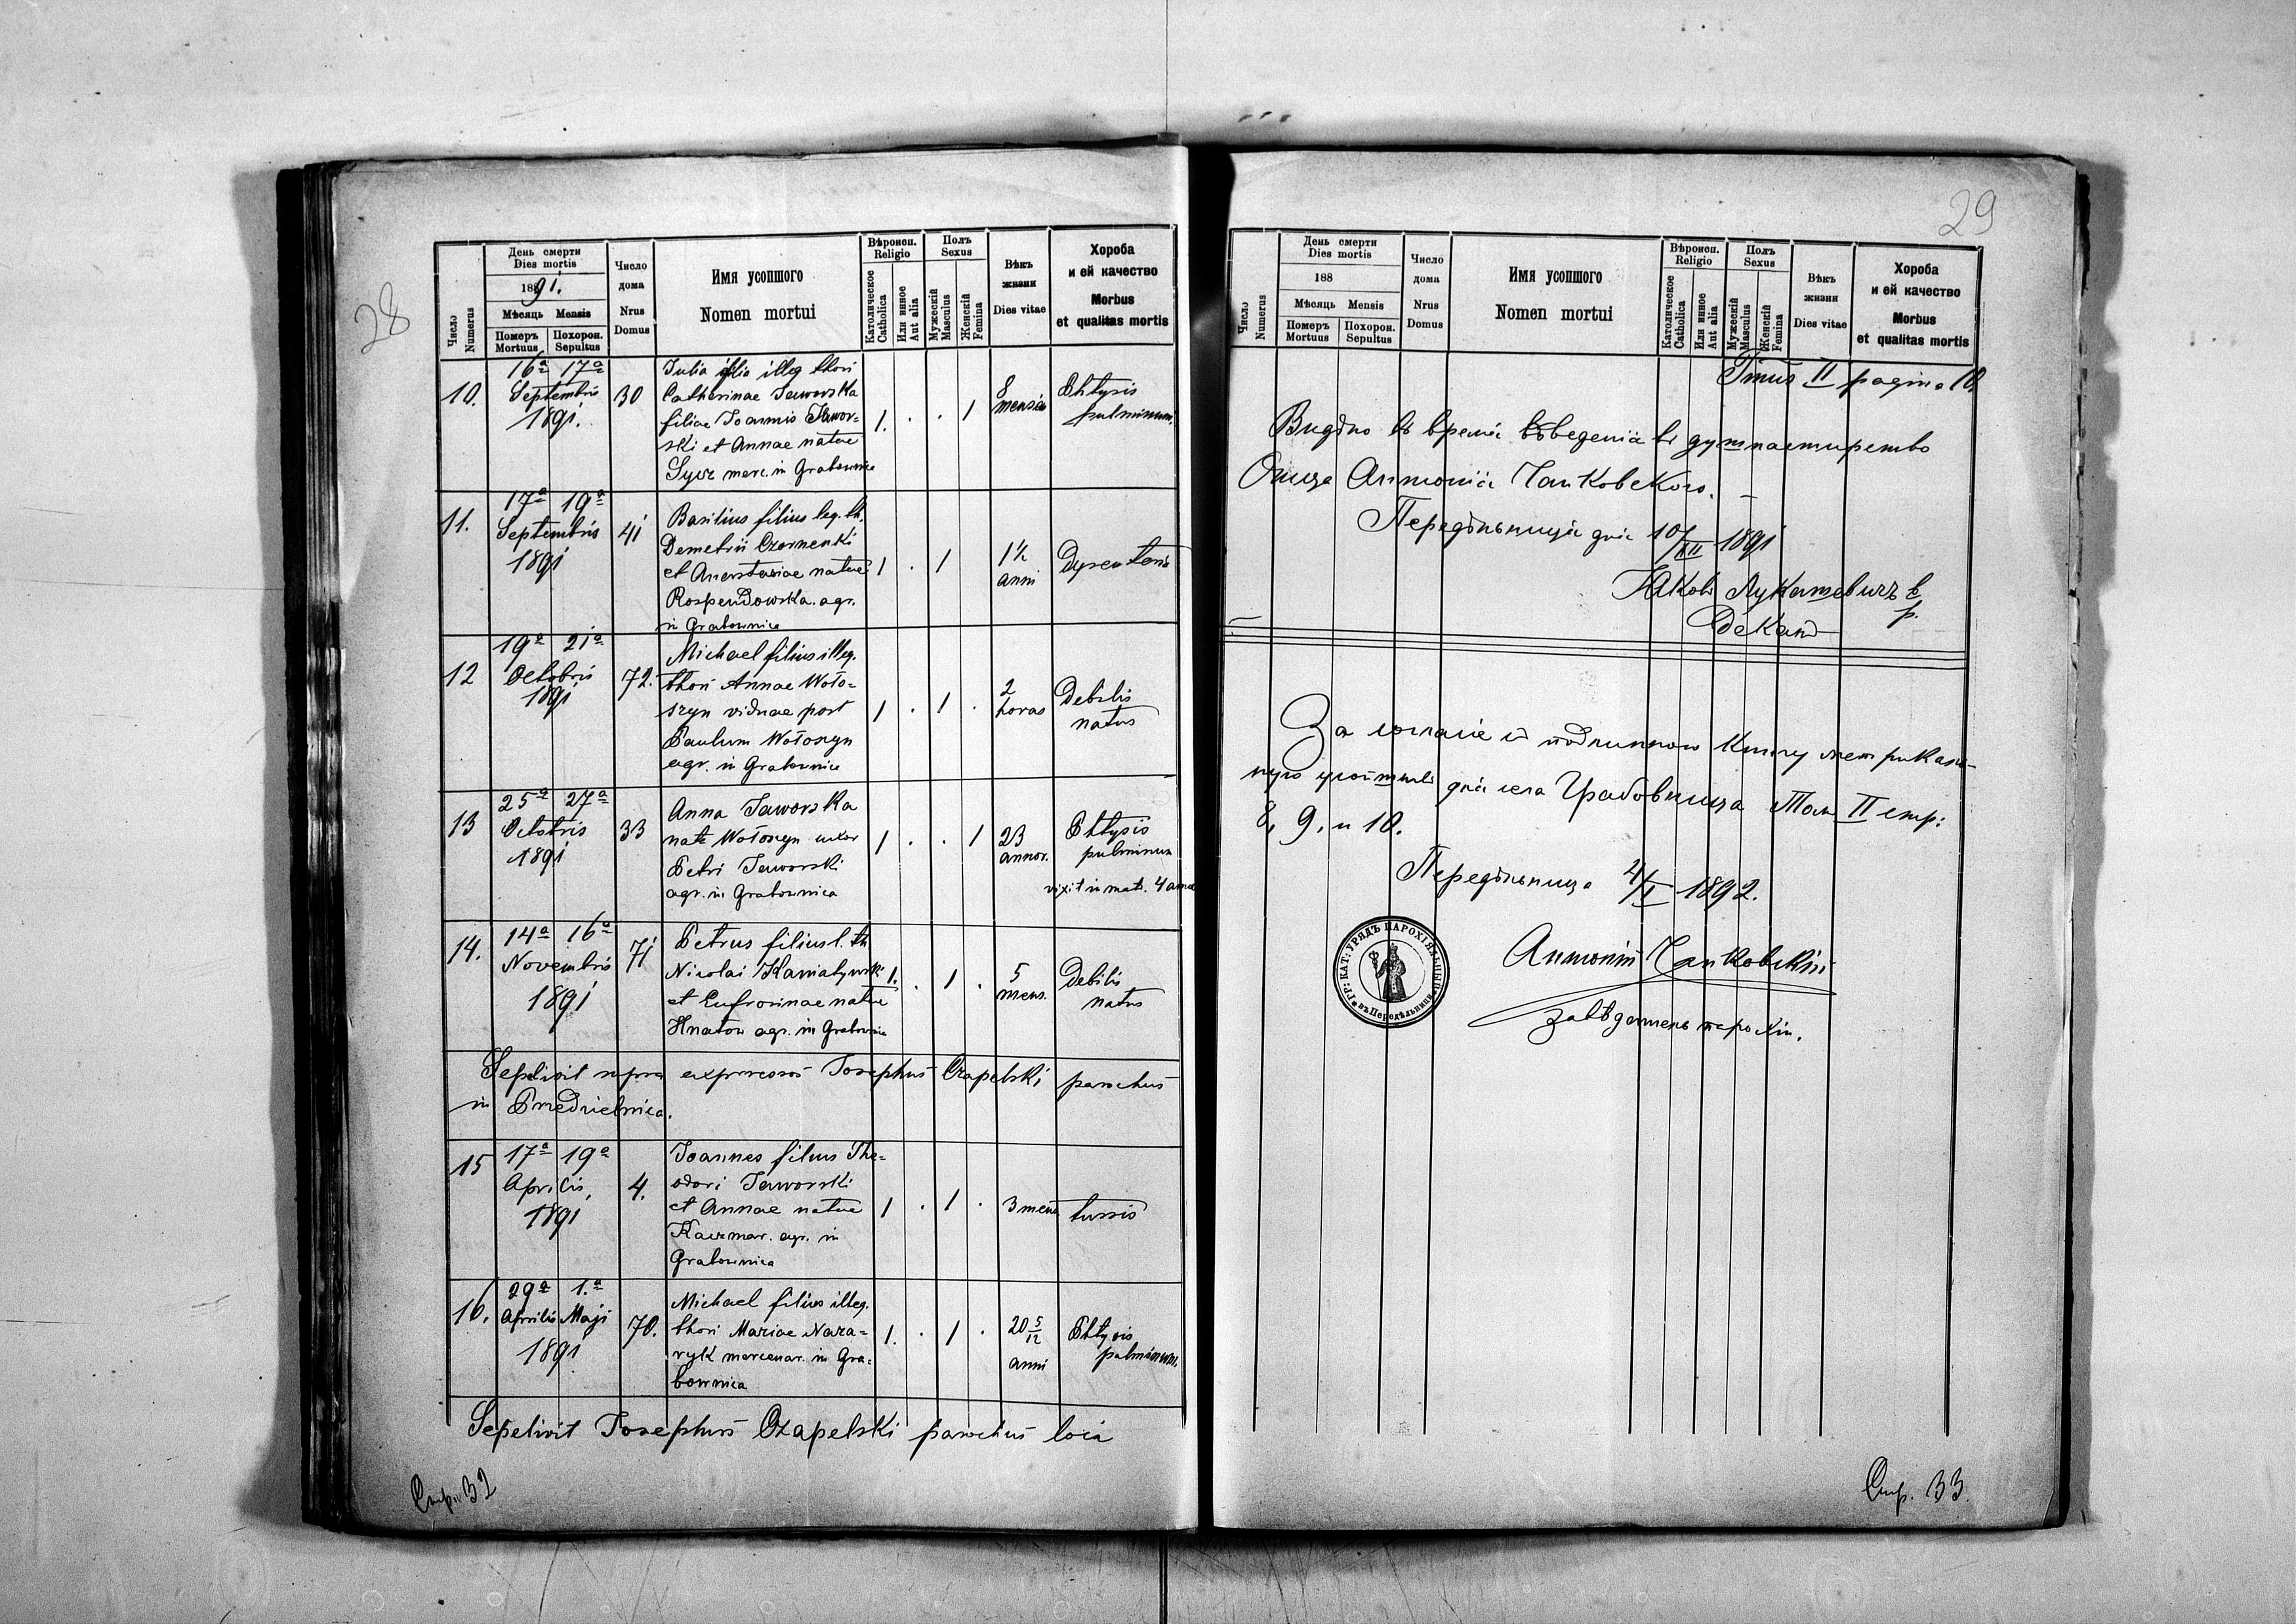 28
Число Numerus
День смерти
Dies mortis
1891.
Мѣсяць Mensis
Померъ Mortuus
Похорон. Sepultus
Число дома
Nrus Domus
Имя усопшого
Nomen mortui
Вѣроисп. Religio
Католическое Catholica
Или инное Aut alia
Полъ Sexus
Мужескій Masculus
Женскій Femina
Вѣкъ жизни
Dies vitae
Хороба и ей качество
Morbus et qualitas mortis
10. 16ª 17ª Septembris 1891. 30
Julia filia illeg thori
Catharinae Jaworska
filiae Joannis Jawor-
ski et Annae natae
merc. in Grabownica
1. . . 1 8 mensis Phtysis pulminum.
11. 17ª 19ª Septembris 1891 41
Basilius filius leg. th.
Demetrii Czerneski
et Anastasiae natae
Rospendowska. agr.
in Grabownica
1 . 1 1½ anni Dysenteria
12 19ª 21ª Octobris 1891 72.
Michael filius illeg.
thori Annae Woło-
szyn viduae post
Paulum Wołoszyn
agr. in Grabownica
1 . 1 . 2 horas Debilis natus
13 25ª 27ª Octobris 1891 33
Anna Jaworska
nata Wołoszyn uxor
Petri Jaworski
agr. in Grabownica
1 . . 1 23 annor. Phtysis pulminum
vixit in mat. 4 annos
14. 14ª 16ª Novembris 1891 71
Petrus filius l. th
Nicolai
et Eufrosinae natae
Hnatow agr. in Grabownica
1. . 1 . 5 mens. Debilis natus
Sepelivit supra expressos Josephus Czapelski parochus
in Przedzielnica.
15 17ª 19ª Aprilis, 1891 4.
Joannes filius The-
odori Jaworski
et Annae natae
Kaczmar. agr. in
Grabownica
1 . 1 . 3 mens tussis
16. 29ª 1.ª Aprilis Maji 1891 70.
Michael filius illeg.
thori Mariae Naza-
ryk mercenar. in Gra-
bownica
1. . 1 . 20 5/12 anni Phtysis pulminum.
Sepelivit Josephus Czapelski parochus loci
Стр. 32
29
Число Numerus
День смерти
Dies mortis
188
Мѣсяць Mensis
Померъ Mortuus
Похорон. Sepultus
Число дома
Nrus Domus
Имя усопшого
Nomen mortui
Вѣроисп. Religio
Католическое Catholica
Или инное Aut alia
Полъ Sexus
Мужескій Masculus
Женскій Femina
Вѣкъ жизни
Dies vitae
Хороба и ей качество
Morbus et qualitas mortis
Tmus II pagina 10.
Видѣно въ время въведенія въ душпастирство
Отца Антонія Чапковского. —
Передѣльниця дня 10/XII 1891
Яковъ Лукашевичъ в/р.
Деканъ
За согласіе съ подлинною книгу метрикаль-
ную усопшихъ для села Грабовница Томъ II стр:
8, 9, и 10.
Передѣльница 4/I 1892.
ГР: КАТ: УРЯДЪ ПАРОХІЯЛЬНЫЙ
въ Передѣльници
Антоній Чапковскій
завѣдатель парохіи.
Стр. 33